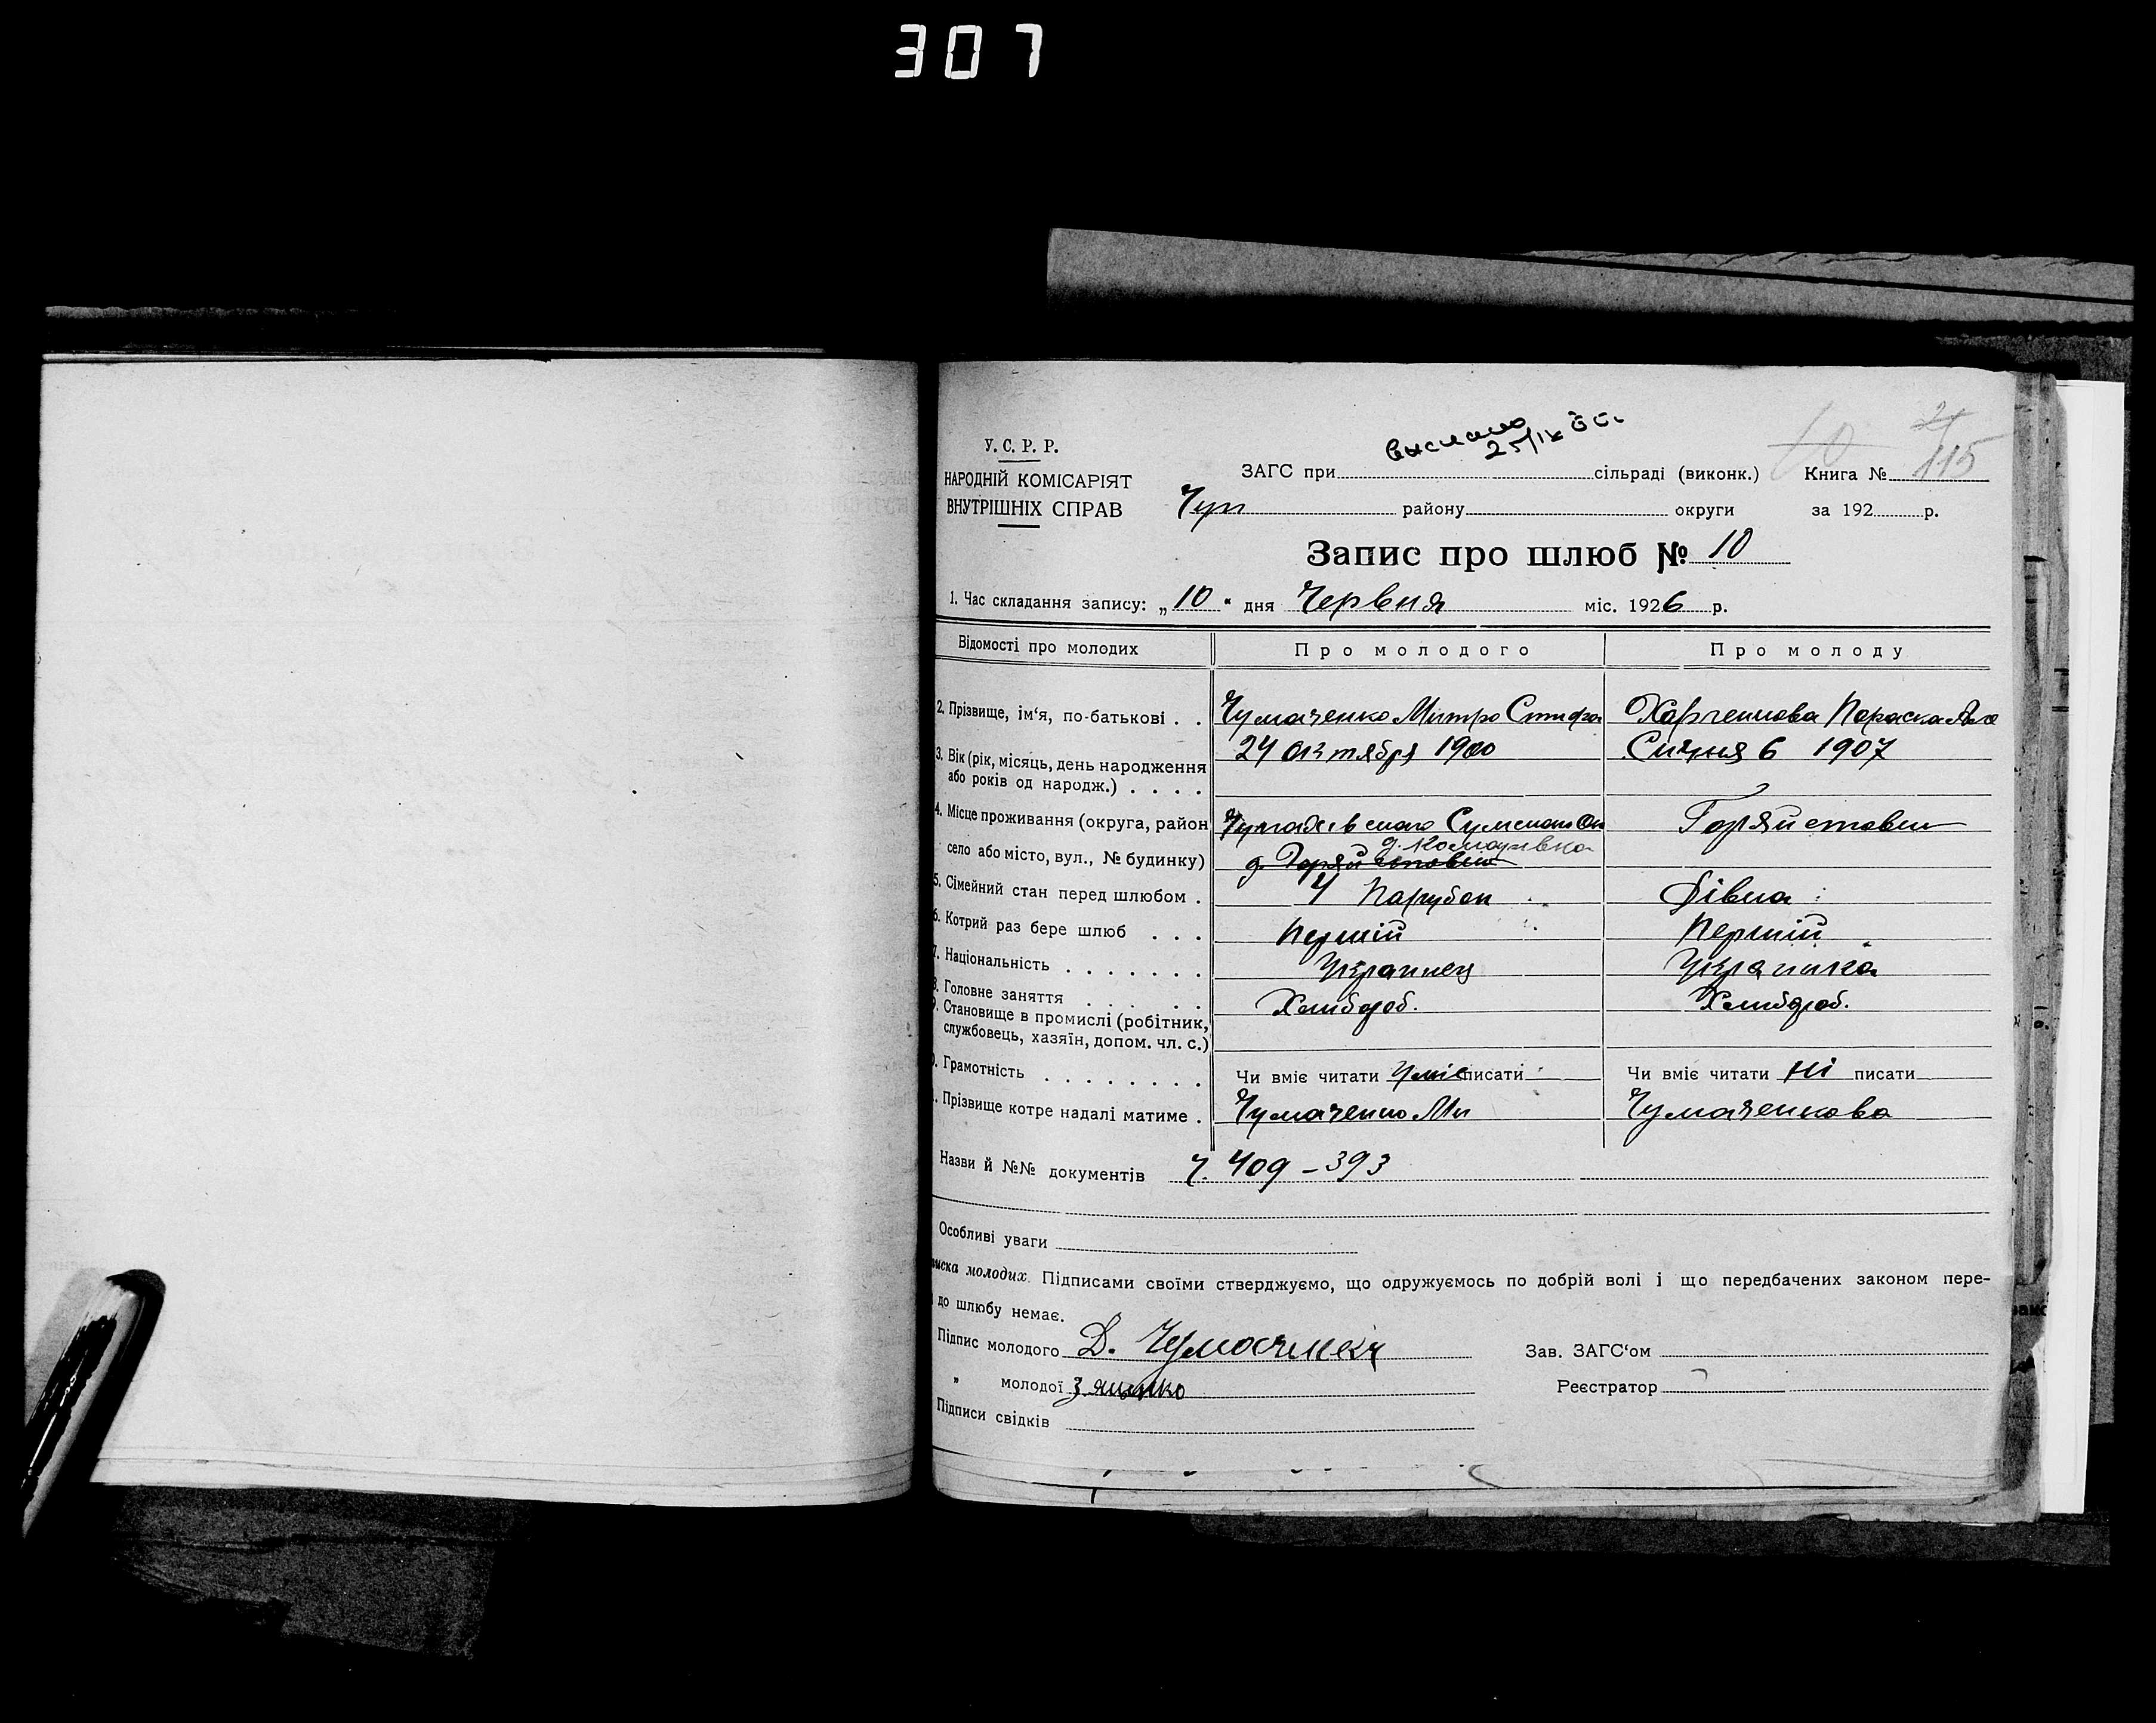 307
У. С. Р. Р.
НАРОДНІЙ КОМІСАРІЯТ
ВНУТРІШНІХ СПРАВ
выслано
25/IX
ЗАГС при сільраді (виконк.) Книга № 115
Чуп району округи за 192 р.
Запис про шлюб № 10
1. Час складання запису: „10“ дня Червня міс. 1926 р.
Відомості про молодих Про молодого Про молоду
2. Прізвище, ім‘я, по-батькові . . Чумаченко Митро Харченкова Параска
3. Вік (рік, місяць, день народження 24 октября 1900 Сичня 6 1907
або років од народж.) . . . .
4. Місце проживання (округа, район
село або місто, вул., № будинку)
5. Сімейний стан перед шлюбом . Парубок Дівка
6. Котрий раз бере шлюб . . . Першій Першій
7. Національність . . . . . . . Українец Українка
8. Головне заняття . . . . . . Хлибороб. Хлибороб.
9. Становище в промислі (робітник,
службовець, хазяїн, допом. чл. с.)
. Грамотність . . . . . . . . Чи вміє читати уміє писати Чи вміє читати ні писати
. Прізвище котре надалі матиме . Чумаченко Ми Чумаченкова
Назви й №№ документів ч. 409 – 393
Особливі уваги
иска молодих. Підписами своїми стверджуємо, що одружуємось по добрій волі і що передбачених законом пере-
до шлюбу немає.
Підпис молодого Д. Зав. ЗАГС‘ом
„ молодої Реєстратор
Підписи свідків